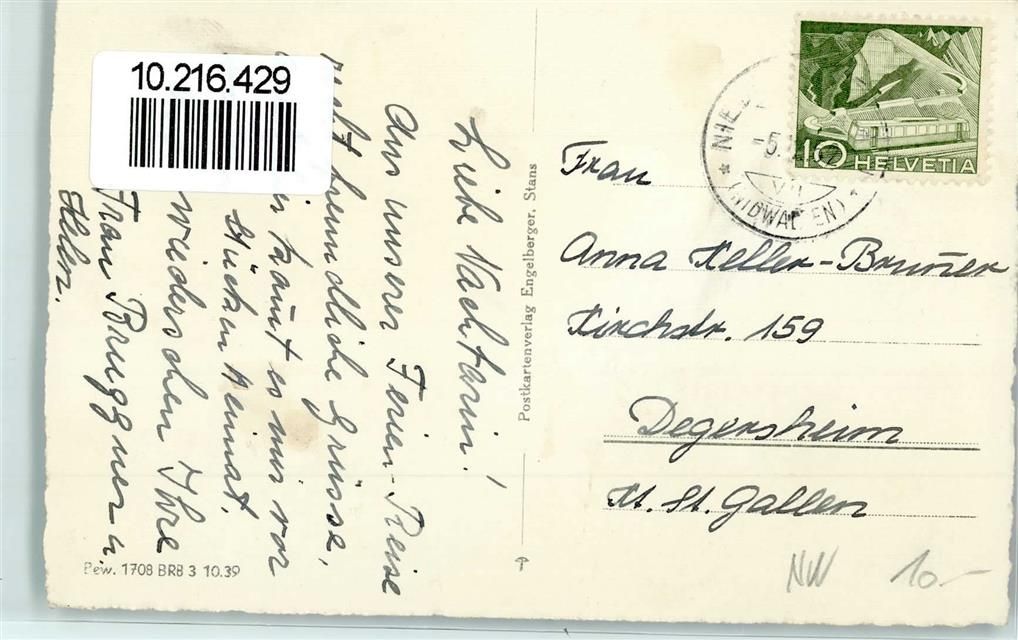 10.216.429
Liebe Nachbarin!
Aus unserer Ferien-Reise
freundliche Grüsse,
kommt es mir vor
Stücklein Heimat.
wiedersehen Ihre
Frau Bruggner u.
Helen.
Postkartenverlag Engelberger, Stans
Bew. 1708 BRB 3 10.39
10 HELVETIA
(NIDWALDEN)
Frau
Anna Keller-Bruner
Kirchstr. 159
Degersheim
Kt. St. Gallen
NW 10.-